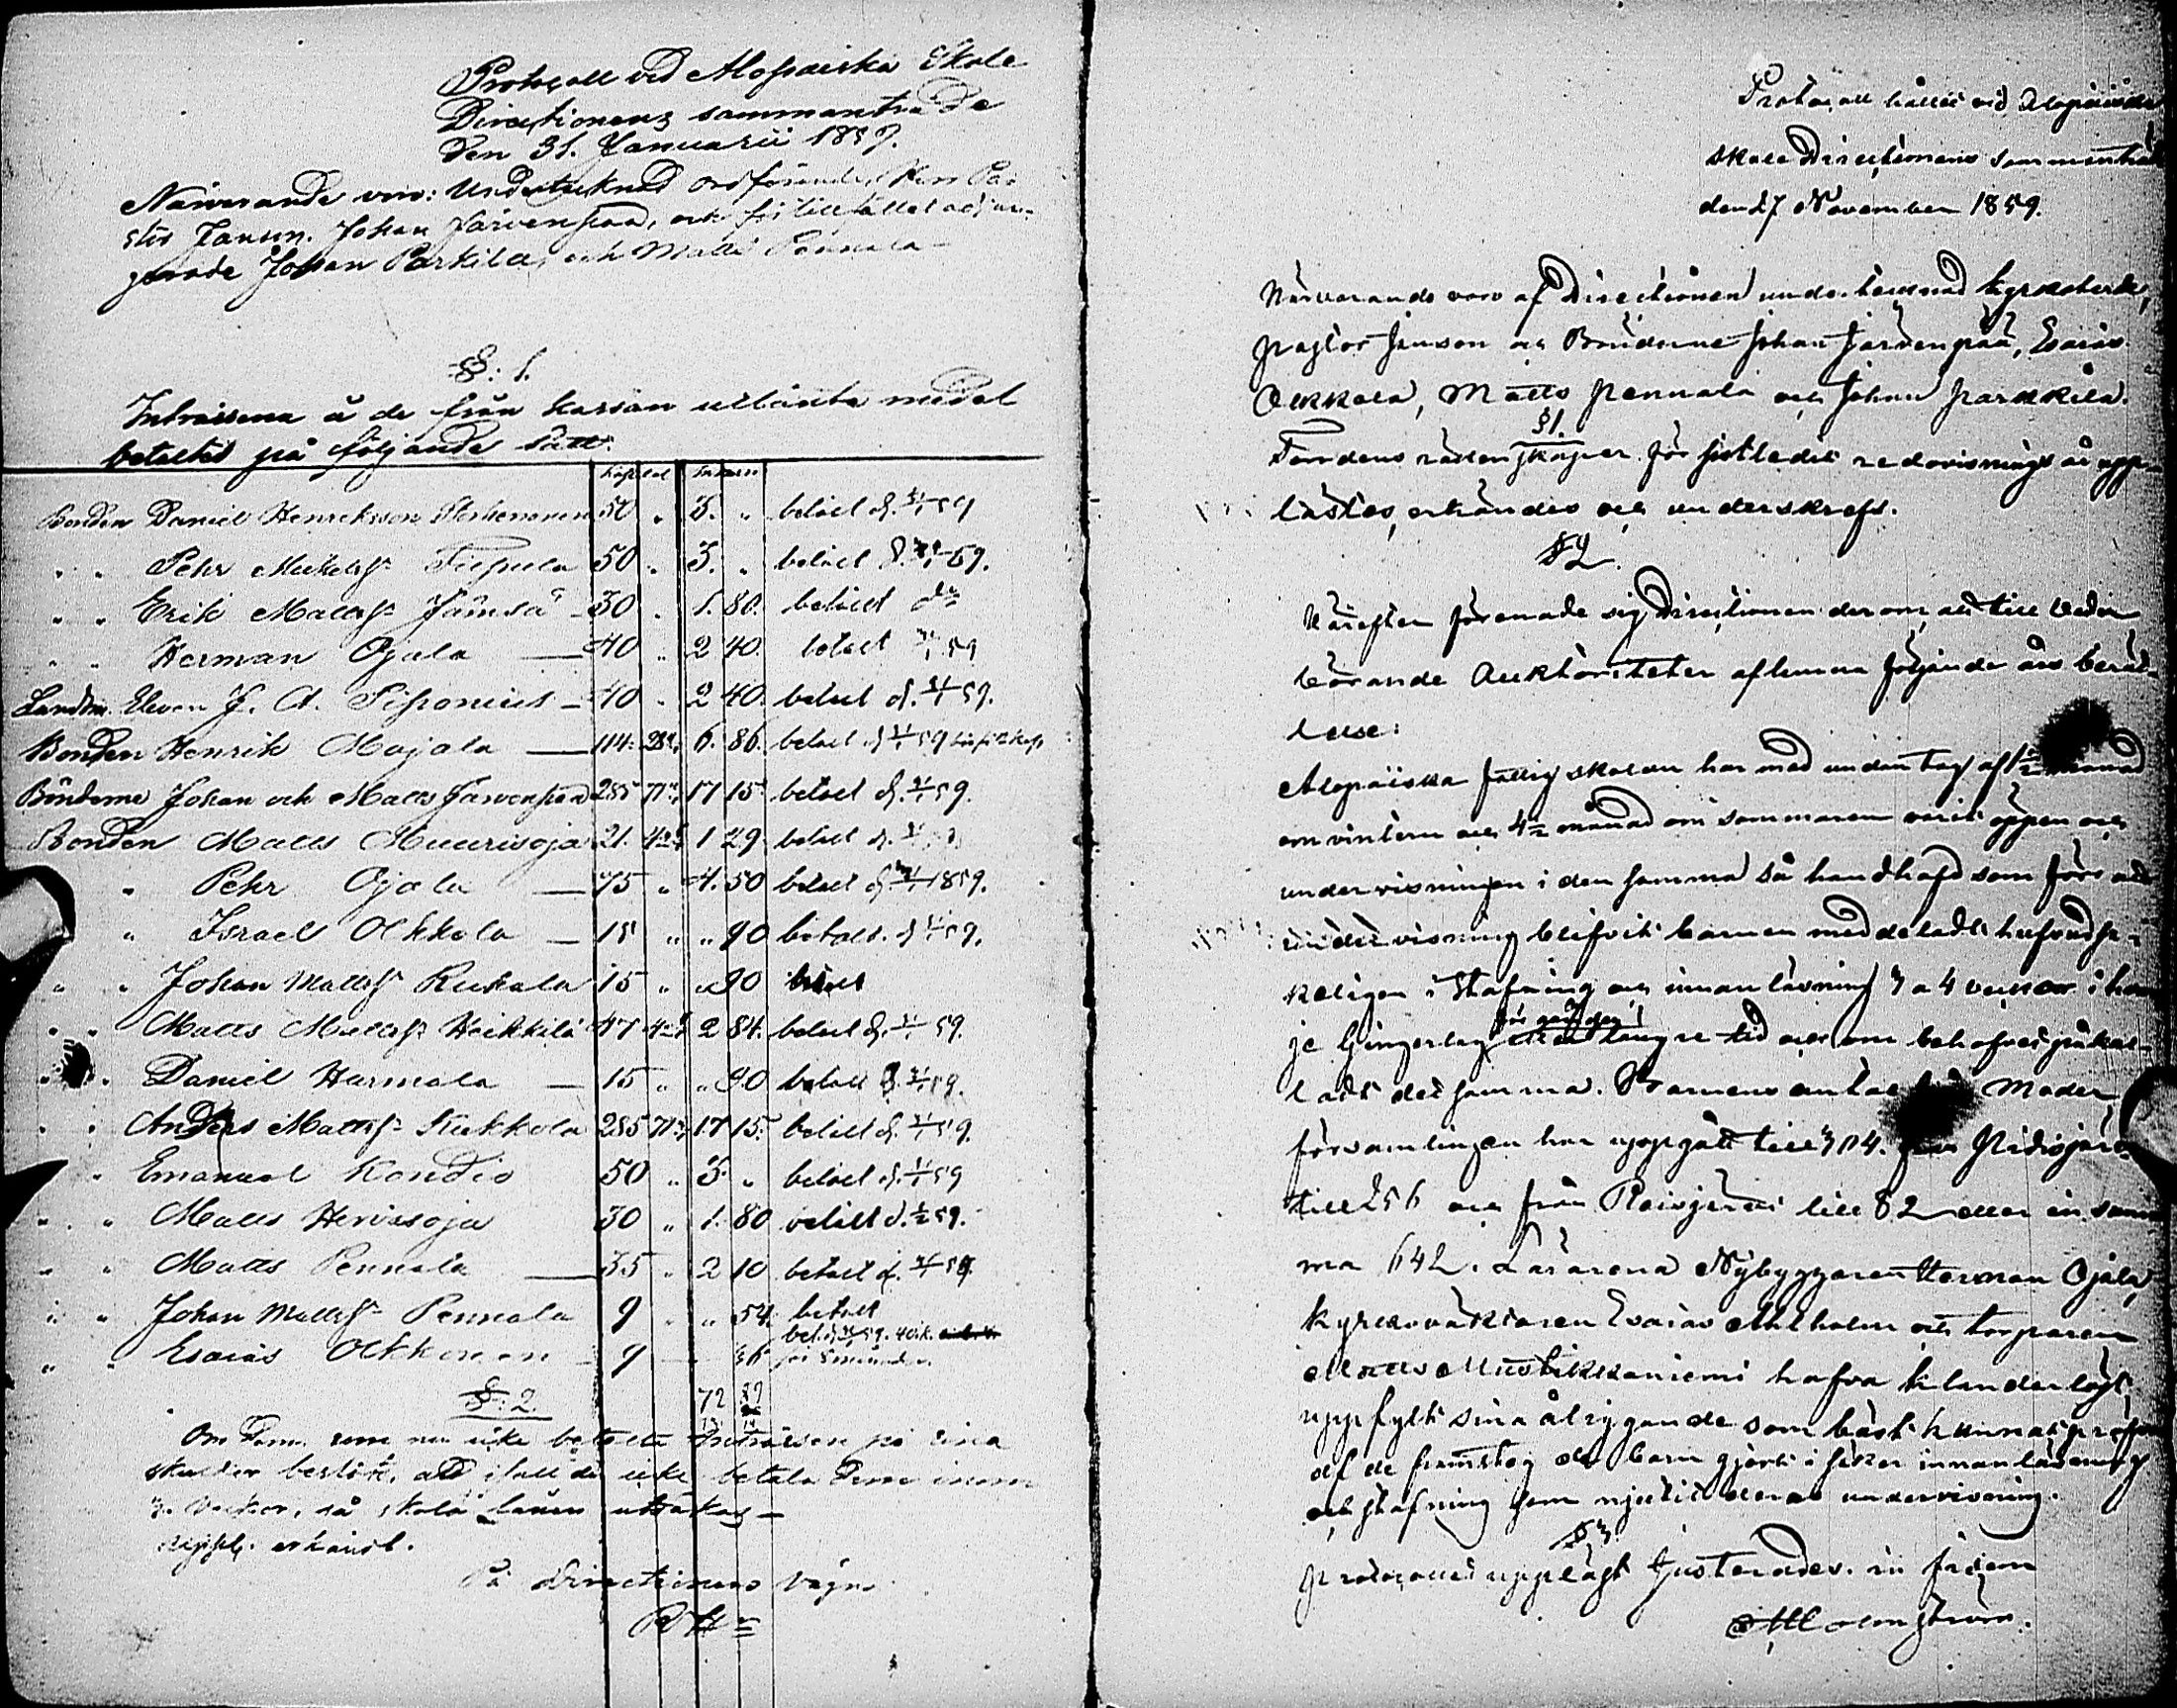 Protocoll vid Alopaeiska Skole
Directionens sammanträde
den 31. Januarii 1859.
Närvarande voro: Undertecknad ordförande, Herr Pa-
stor Janson, Johan Järvenpää, och för tillfället adjun-
gerade Johan Parkila, och Matts Pennala
§: 1.
Intressena å de från kassan utlånta medel
betaltes på följande sätt:
Kapital Intresse
Bonden Daniel Henriksson 50 " 3. " betalt d. 31/1 59
" " Pehr Mickelss. Piipula 50 " 3. " betalt d. 59.
" " Erik Mattss. Jämsä 30 " 1. 80. betalt do
" " Herman Ojala — 40 " 2 40. betalt 59
Landtm. Eleven J. A. Siponius — 40 " 2 40. betalt d. 59.
Bonden Henrik Majala — 114. 28 6. 86. betalt d. 59
Bönderne Johan och Matts Järvenpää 285 71 17 15. betalt d. 59.
Bonden Matts Muurisoja 21. 42 1 29 betalt d.
" Pehr Ojala — 75 " 4. 50 betalt d. 1859.
" Israel Olkkola — 15 " " 90 betalt d. 59.
" " Johan Mattss. Ruukala 15 " " 90 betalt
" " Matts Mattss. Heikkilä 47 42 2 84. betalt d. 59.
" " Daniel Harmala — 15 " " 90 betalt d. 59.
" " Anders Mattss. Kukkola 285 71 17 15. betalt d. 59.
" Emanuel Kondio 50 " 3. " betalt d. 59
" " Matts Hervasoja 30 " 1. 80 betalt d. 59.
" " Matts Pennala — 35 " 2 10 betalt d. 59
" " Johan Mattss. Pennala 9 " " 54. betalt
" " Esaias Olkkonen 9 — 36 bet. d. 59. för 8 månader.
§: 2. 72
Om dem, som nu icke betalte Intressen på sina
skulder beslöts, att ifall de icke betala dem inom
3. veckor, så skola lånen utsökas —
uppl. erkändt.
På Directionens vägnar
Protocoll hållet vid Alopaeiska
Skole Directionens sammanträde
den 27 November 1859.
Närvarande voro af Directionen undertecknad kyrkoherde,
pastor Janson och Bönderne Johan Järvenpää, Esaias
Olkkola, Matts Pennala och Johan Parkkila.
§1.
Fondens räkenskaper för sistledit redovisnings år upp-
lästes, erkändes och underskrefs.
§2.
Härefter förenade sig Directionen derom att till veder
börande Auktoriteter aflemna följande års berät-
telse:
Alopaiiska fattig skolan har med undentag af 1½ månad
om vintern och 4½ månad om sommaren varit öppen och
undervisningen i den samma så handhafd som förr och
undervisning blifvit barnen meddeladt hufvudsa-
keligen i Stafning och innanläsning 3 a 4 veckor i hvar-
je Gingerlag längre tid och om behofvet påkal-
ladt det samma. Barnens antal från Moder
församlingen har uppgått till 304. från Pidisjärvi
till 256 och från Reisjärvi till 82 eller in sum
ma 642. Lärarena Nybyggaren Herman Ojala,
kyrkovaktaren Esaias Ahlholm och torparen
Matts Mustikkaniemi hafva klanderlöst
uppfyllt sina åligganden som bäst kunnat
af de framsteg de barn gjort i säker innanläsning
och stafning som njutit deras undervisning.
§3.
Protocollet uppläst justerades. in fidem
Holmström.